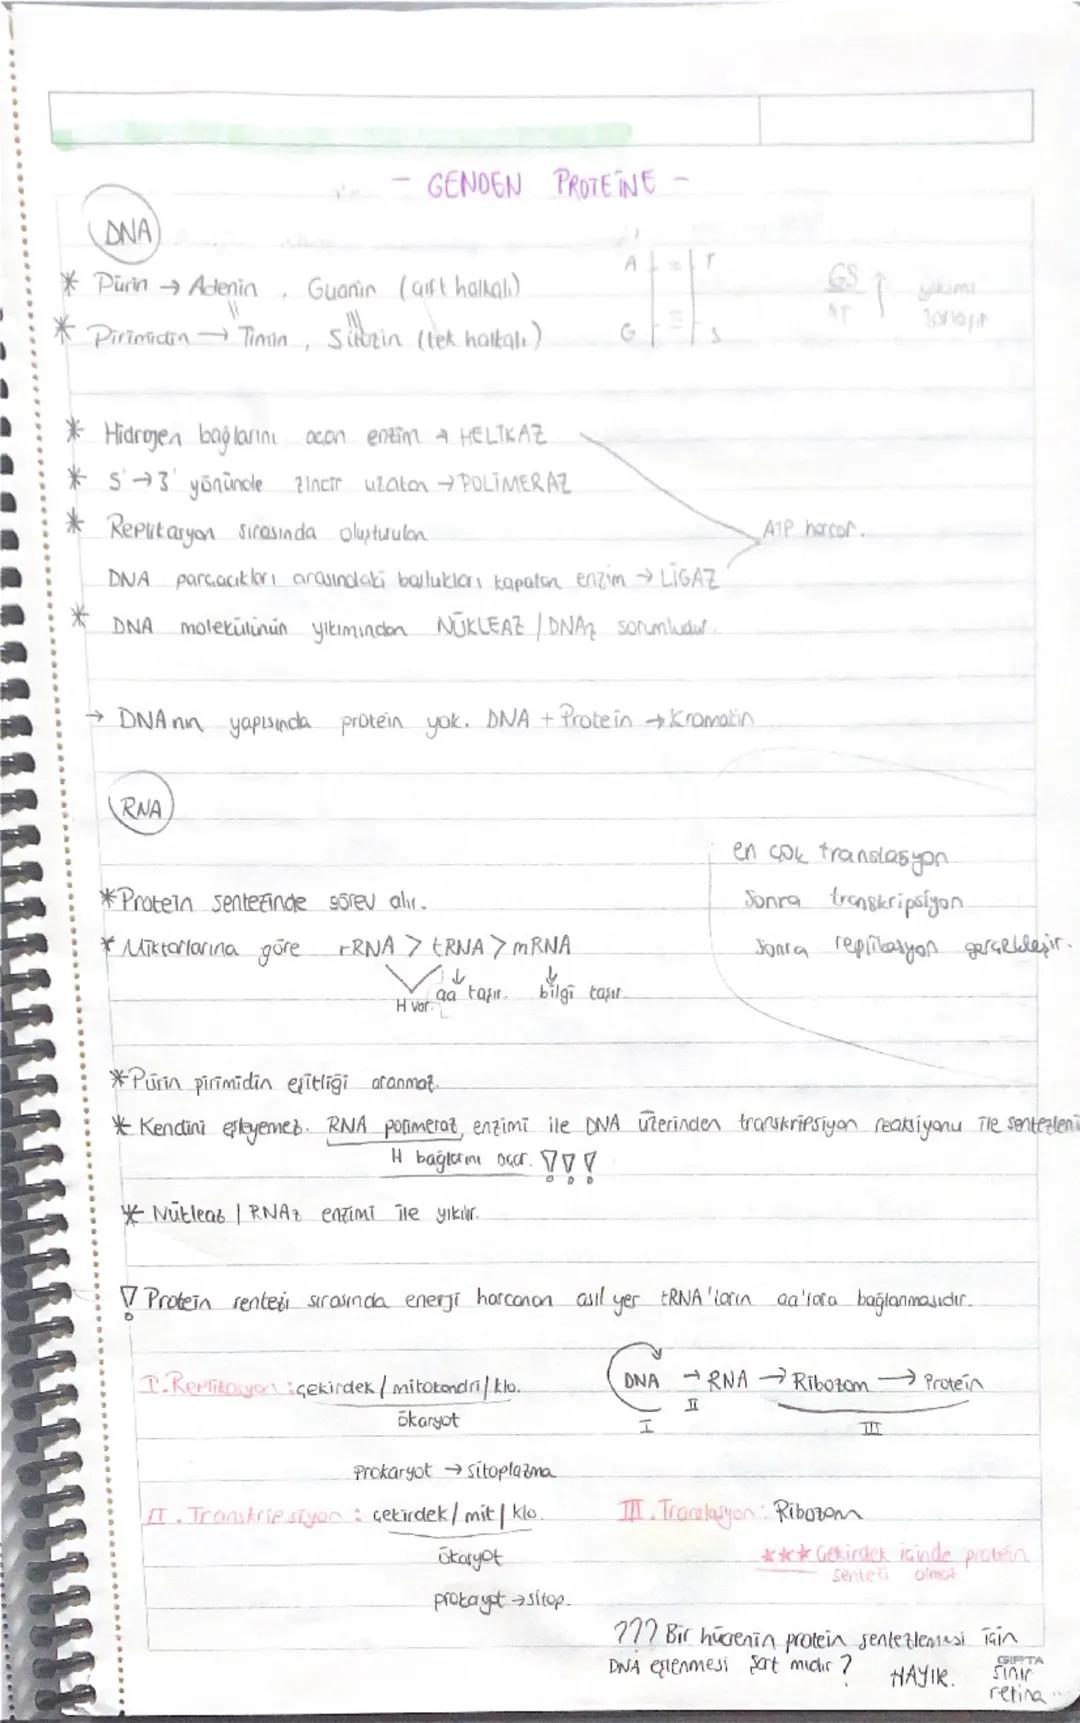 - GENDEN PROTEİNE -
DNA
* Pürin → Adenin , Guanin (çift halkalı)
* Pirimidin → Timin , Sitozin (tek halkalı)
A = T
G ≡ S
GS ↑ yıkımı
AT zorlaşır
* Hidrojen bağlarını açan enzim → HELİKAZ
* 5'→3' yönünde zincir uzatan → POLİMERAZ
* Replikasyon sırasında oluşturulan
DNA parçacıkları arasındaki boşlukları kapatan enzim → LİGAZ
ATP harcar.
* DNA molekülünün yıkımından NÜKLEAZ / DNAz sorumludur.
→ DNA nın yapısında protein yok. DNA + Protein → Kromatin
RNA
en çok translasyon
sonra transkripsiyon
sonra replikasyon gerçekleşir.
* Protein sentezinde görev alır.
* Miktarlarına göre rRNA > tRNA > mRNA
H var. aa taşır. bilgi taşır.
* Pürin pirimidin eşitliği aranmaz.
* Kendini eşleyemez. RNA polimeraz enzimi ile DNA üzerinden transkripsiyon reaksiyonu ile sentezleni
H bağlarını açar. !!!
* Nükleaz | RNAz enzimi ile yıkılır.
! Protein sentezi sırasında enerji harcanan asıl yer tRNA'ların aa'lara bağlanmasıdır.
I. Replikasyon : çekirdek / mitokondri / klo.
ökaryot
prokaryot → sitoplazma
DNA → RNA → Ribozom → Protein
I II III
II. Transkripsiyon : çekirdek / mit / klo.
ökaryot
prokaryot → sitop.
III. Translasyon : Ribozom
*** Çekirdek içinde protein
sentezi olmaz
??? Bir hücrenin protein sentezlemesi için
DNA eşlenmesi şart mıdır? HAYIR.
GIPTA
sinir
retina...